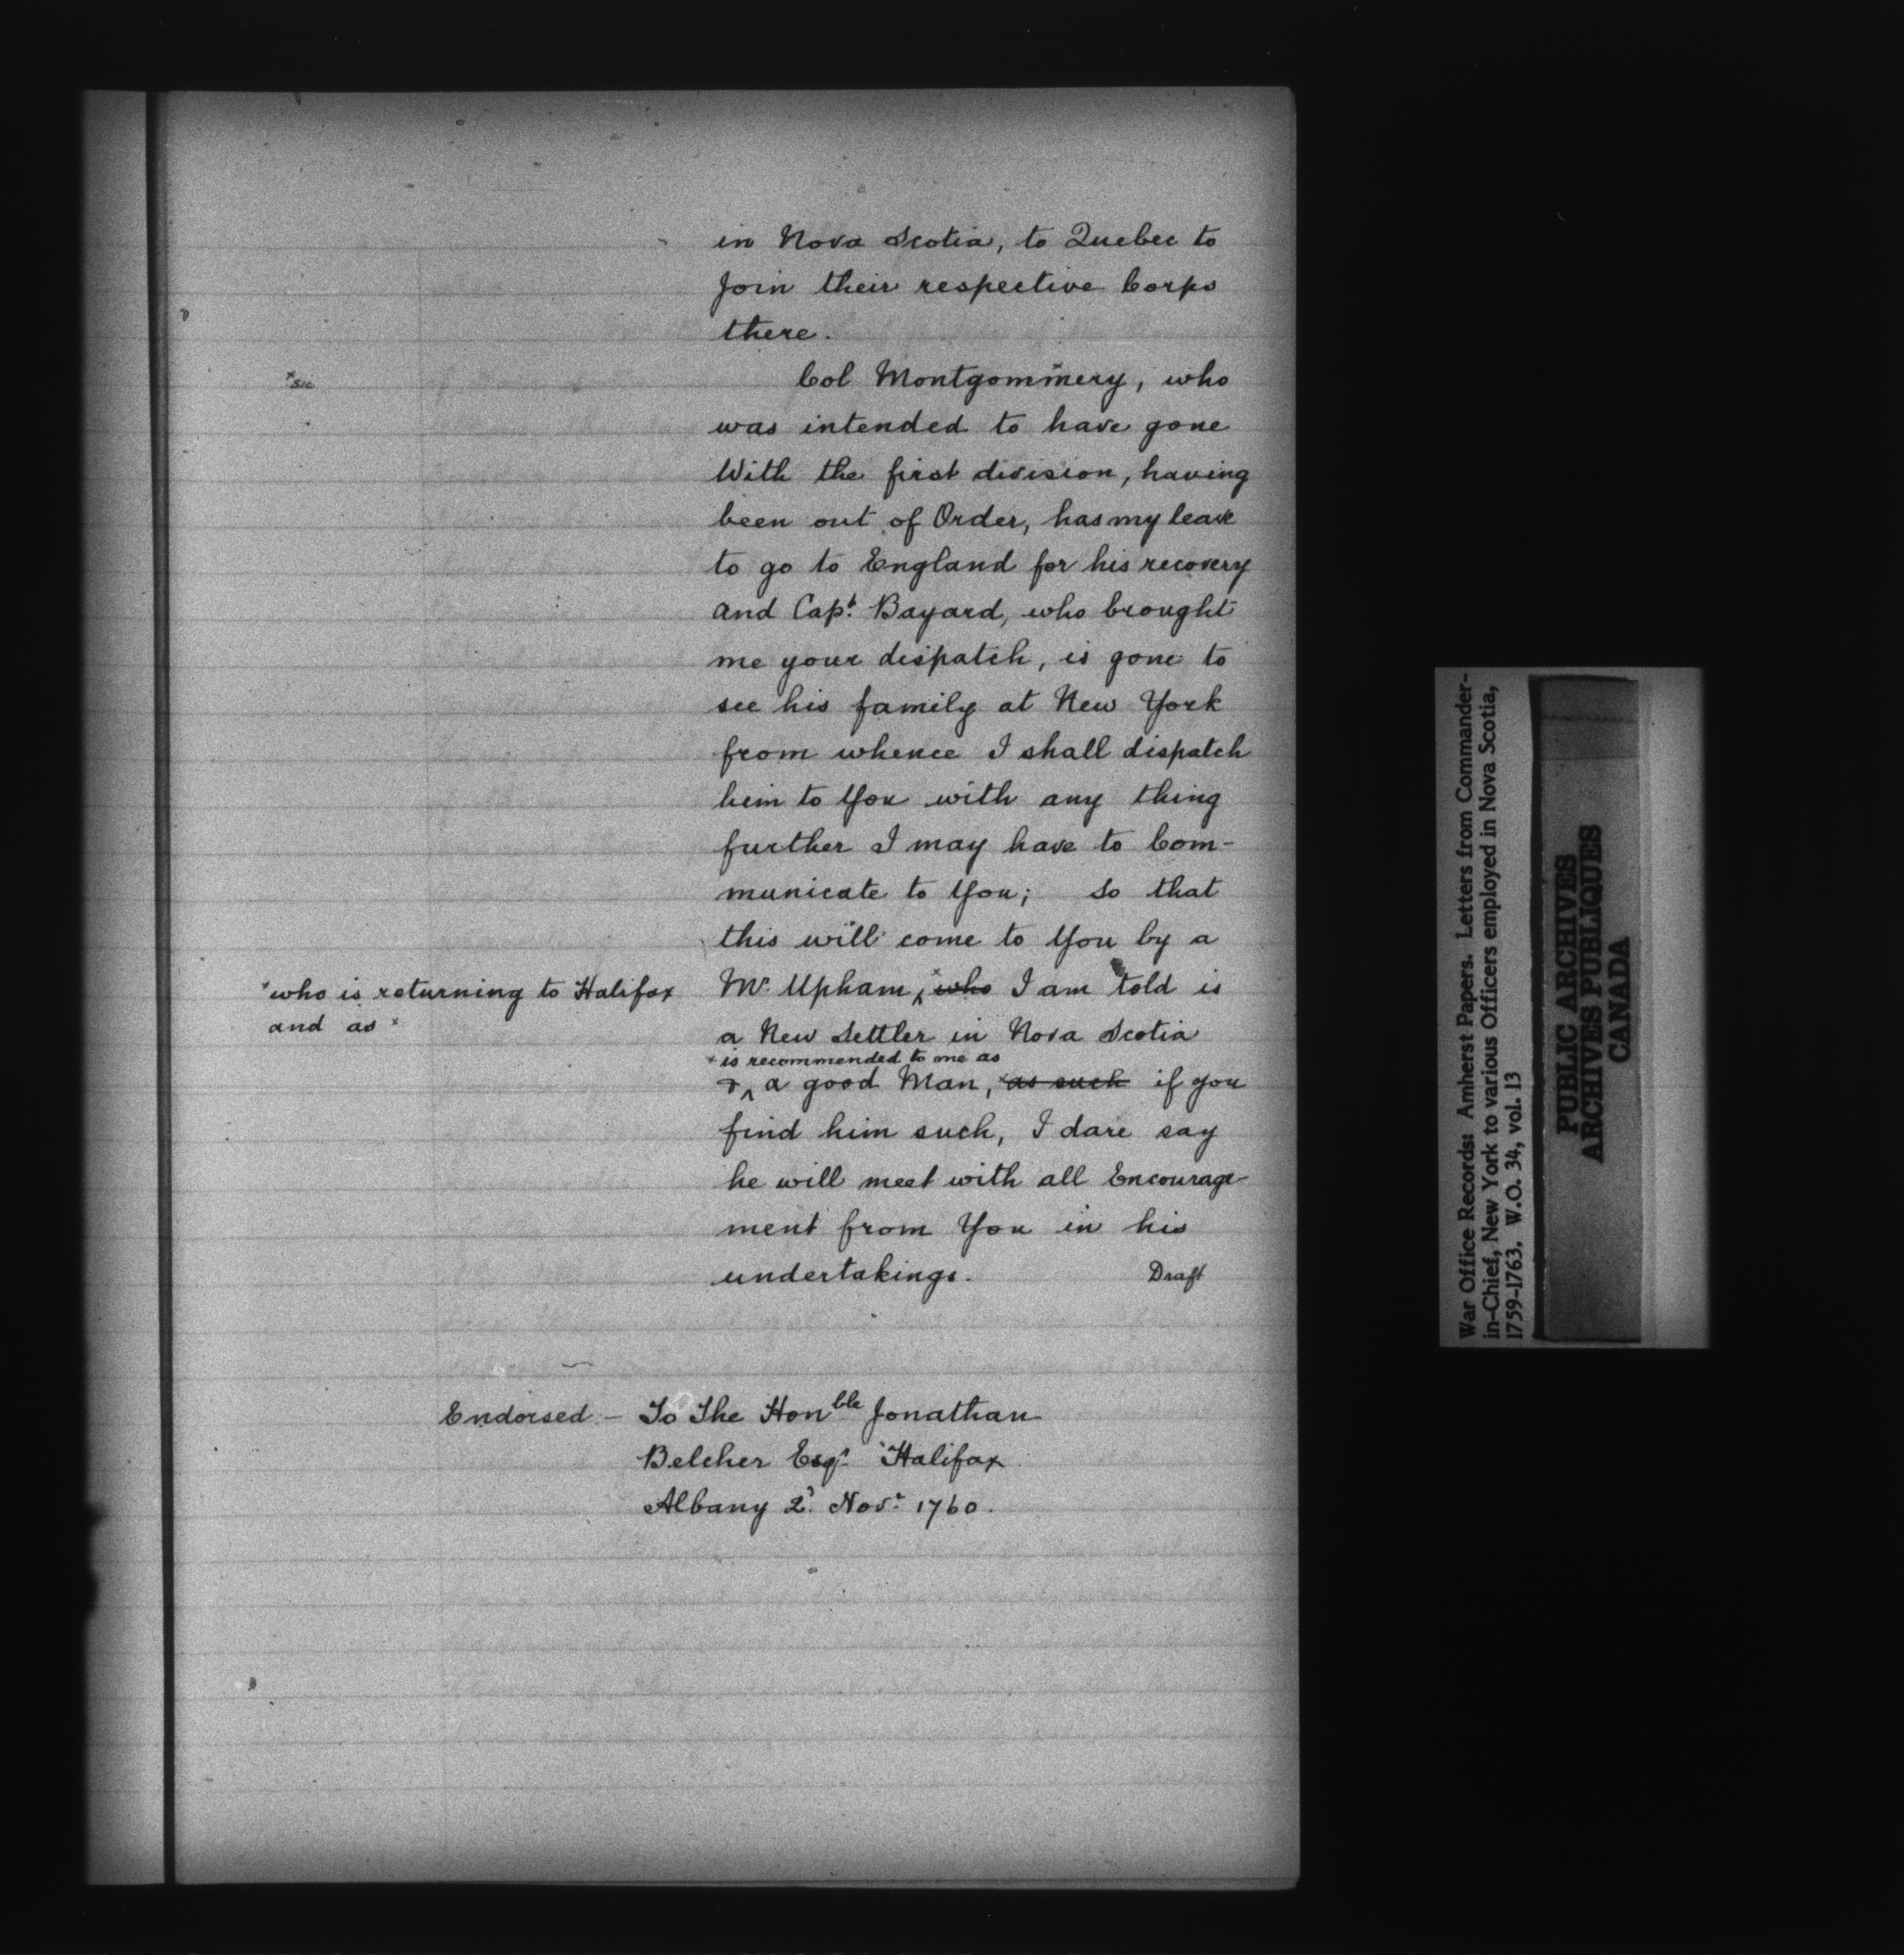 in Nova Scotia, to Quebec to
Join their respective Corps
there.
*sic
Col Montgommery, who
was intended to have gone
With the first division, having
been out of Order, has my leave
to go to England for his recovery
and Capt. Bayard, who brought
me your dispatch, is gone to
see his family at New York
from whence I shall dispatch
him to You with any thing
further I may have to Com-
municate to You; So that
this will come to You by a
*who is returning to Halifax
and as*
Mr. Upham, who I am told is
a New Settler in Nova Scotia
*is recommended to me as
& a good Man, *as such if you
find him such, I dare say
he will meet with all Encourage-
ment from You in his
undertakings.
Draft
Endorsed - To The Honble Jonathan
Belcher Esqr. Halifax
Albany 2d. Novr. 1760.
War Office Records: Amherst Papers. Letters from Commander-
in-Chief, New York to various Officers employed in Nova Scotia,
1759-1763. W.O. 34, vol. 13
PUBLIC ARCHIVES
ARCHIVES PUBLIQUES
CANADA